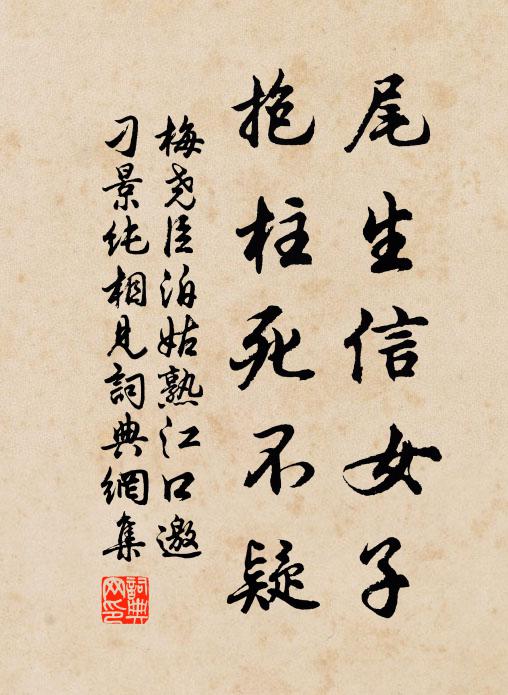 尾生信女子
抱柱死不疑
梅尧臣泊姑熟江口邀
刁景纯相見詞典網集
詞典
网印